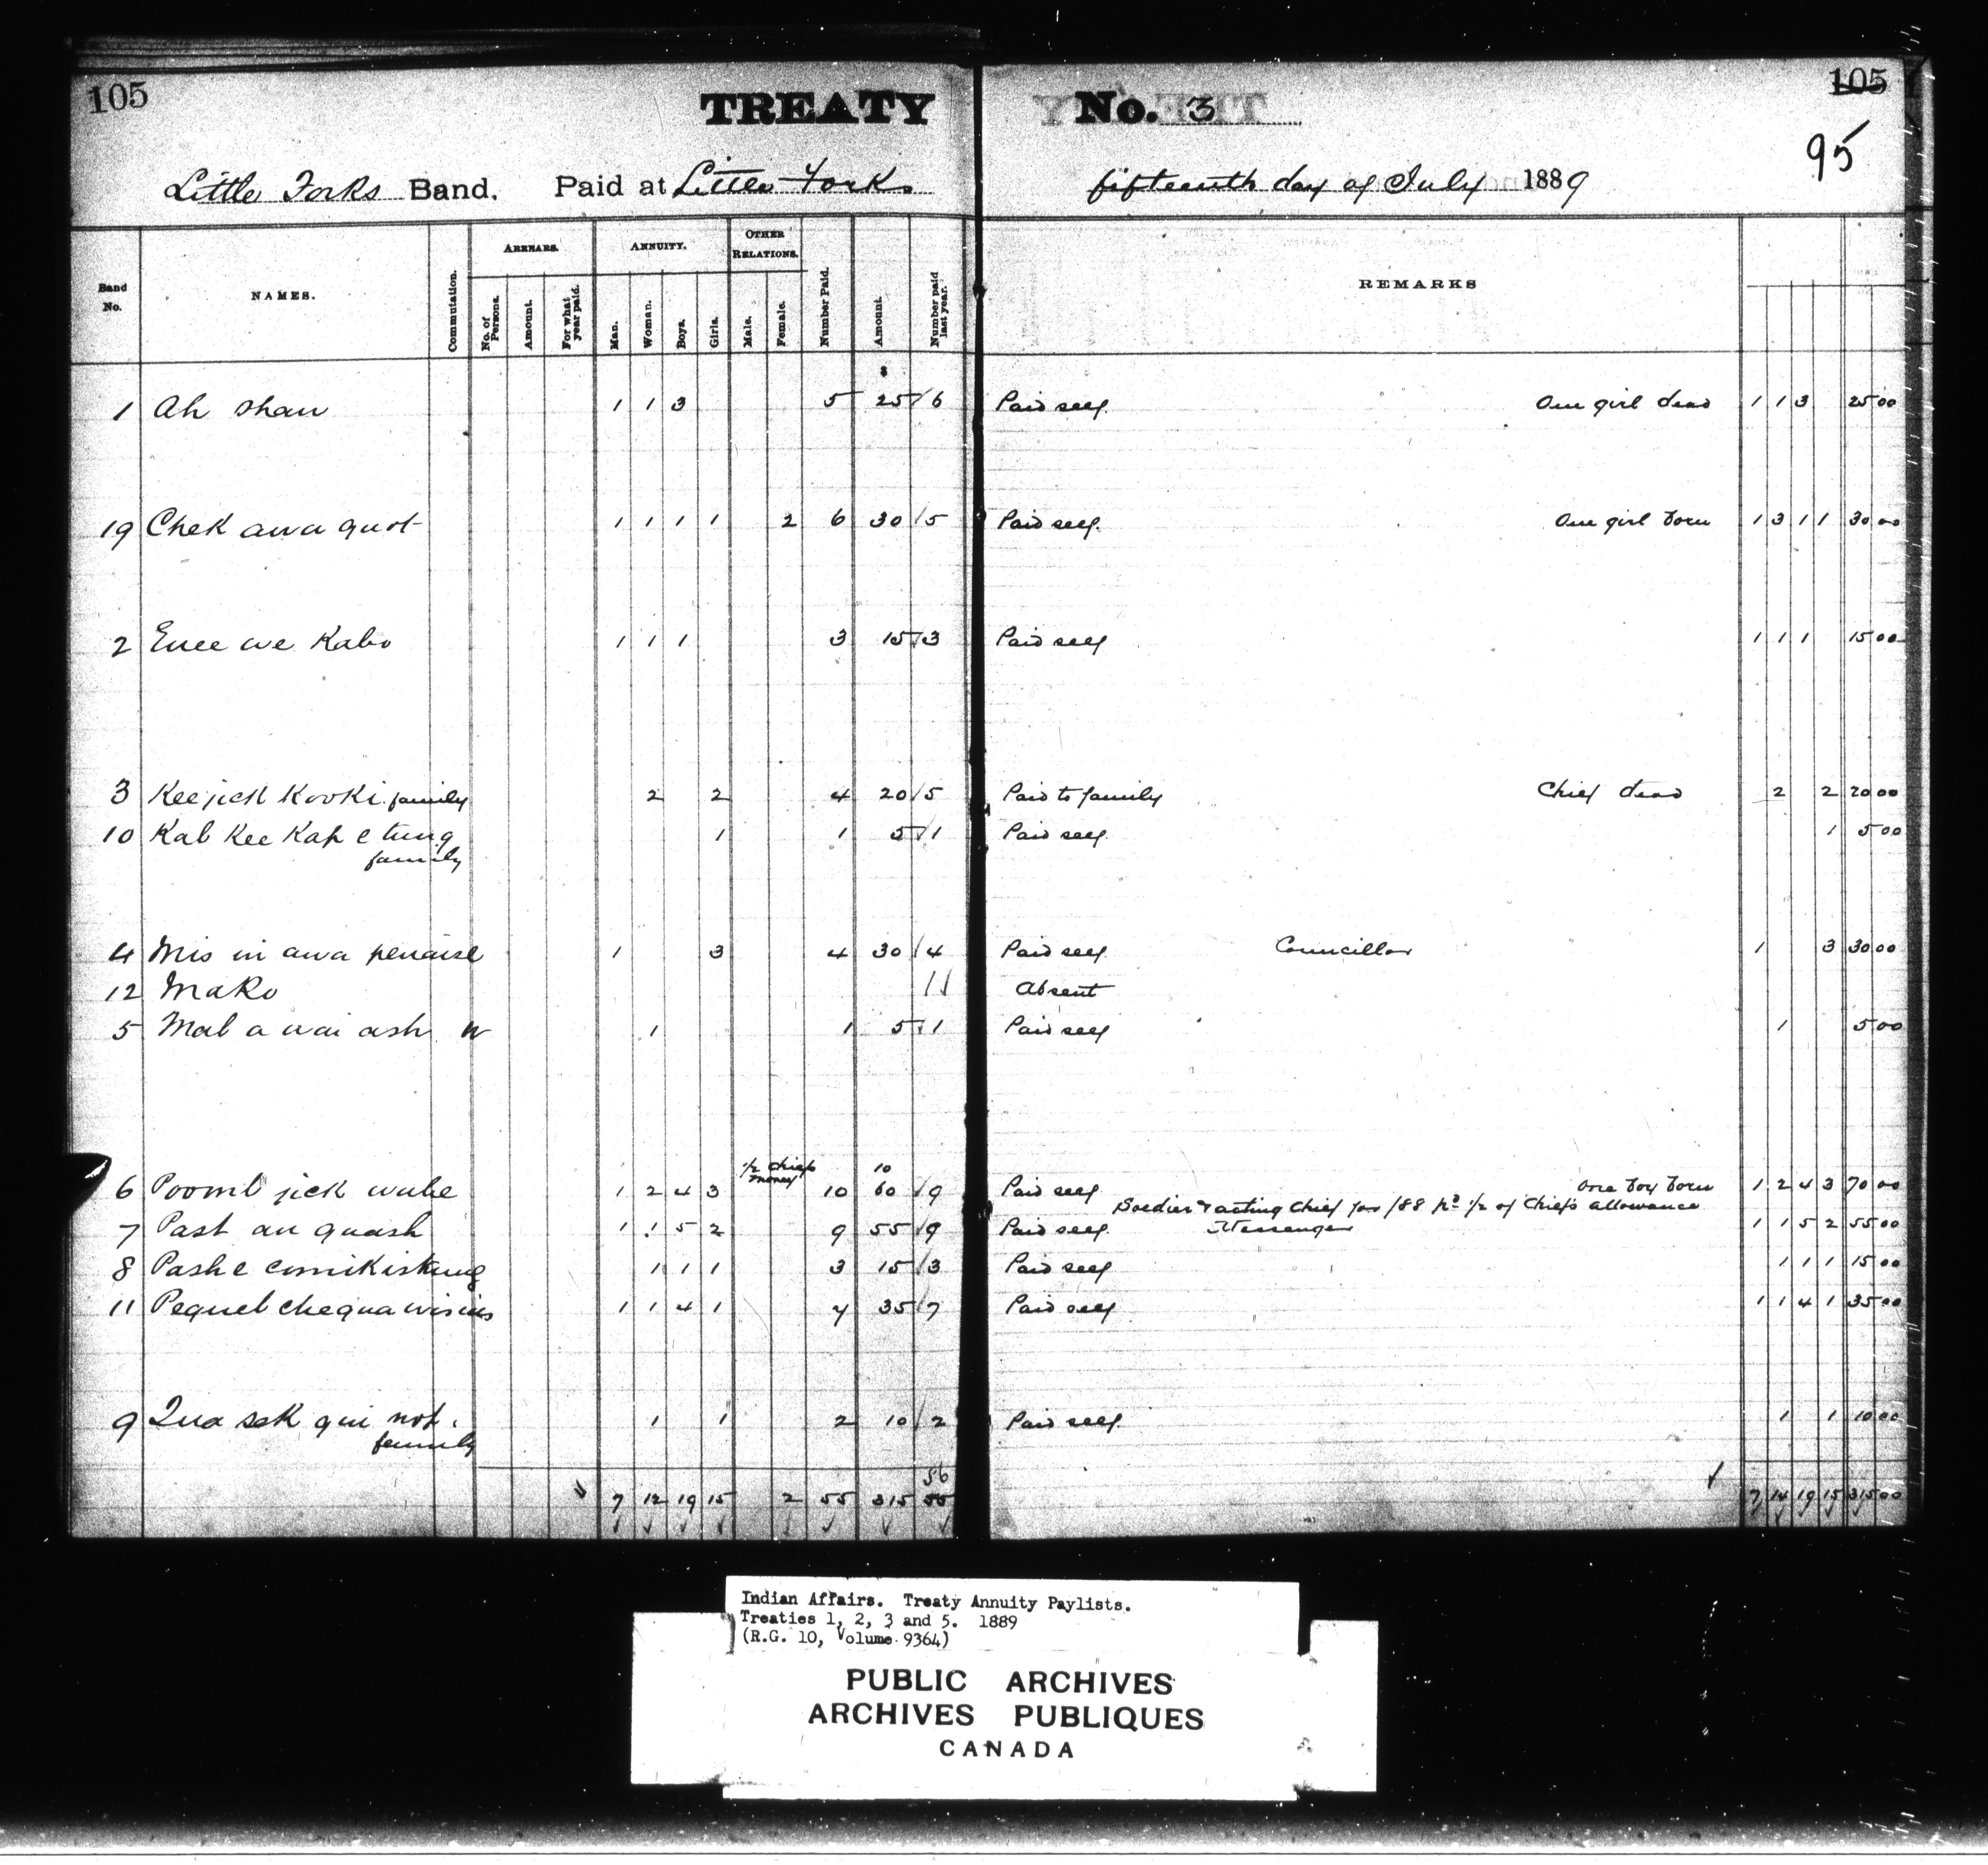 105
TREATY No. 3
105
95
Little Forks Band. Paid at Little Forks fifteenth day of July 1889
Band No. NAMES. Commutation. ARREARS. No. of Persons. Amount. For what year paid. ANNUITY. Man. Woman. Boys. Girls. OTHER RELATIONS. Male. Female. Number Paid. Amount. Number paid last year. REMARKS
1 Ah shaw 1 1 3 5 25 6 Paid self. One girl dead 1 1 3 25 00
19 Chek awa quot 1 1 1 1 2 6 30 5 Paid self. One girl born 1 3 1 1 30 00
2 Enee we Kabo 1 1 1 3 15 3 Paid self 1 1 1 15 00
3 Kee jick Kooki family 2 2 4 20 5 Paid to family Chief dead 2 2 20 00
10 Kab Kee Kap e tung 1 1 5 1 Paid self. 1 5 00
family
4 Mis in awa penaise 1 3 4 30 4 Paid self. Councillor 1 3 30 00
12 Mako 1 Absent
5 Mab a wai ash W 1 1 5 1 Paid self 1 5 00
1/2 chiefs money 10
6 Poomb jick wabe 1 2 4 3 10 60 9 Paid self One boy born 1 2 4 3 70 00
Soldier & acting Chief for /88 pd 1/2 of Chiefs allowance
7 Past an quash 1 1 5 2 9 55 9 Paid self. Messenger 1 1 5 2 55 00
8 Pash e comikiskung 1 1 1 3 15 3 Paid self 1 1 1 15 00
11 Pequeb chequa wisins 1 1 4 1 7 35 7 Paid self 1 1 4 1 35 00
9 Qua sek qui not. 1 1 2 10 2 Paid self. 1 1 10 00
family
56
7 12 19 15 2 55 315 55 7 14 19 15 315 00
Indian Affairs. Treaty Annuity Paylists.
Treaties 1, 2, 3 and 5. 1889
(R.G. 10, Volume 9364)
PUBLIC ARCHIVES
ARCHIVES PUBLIQUES
CANADA